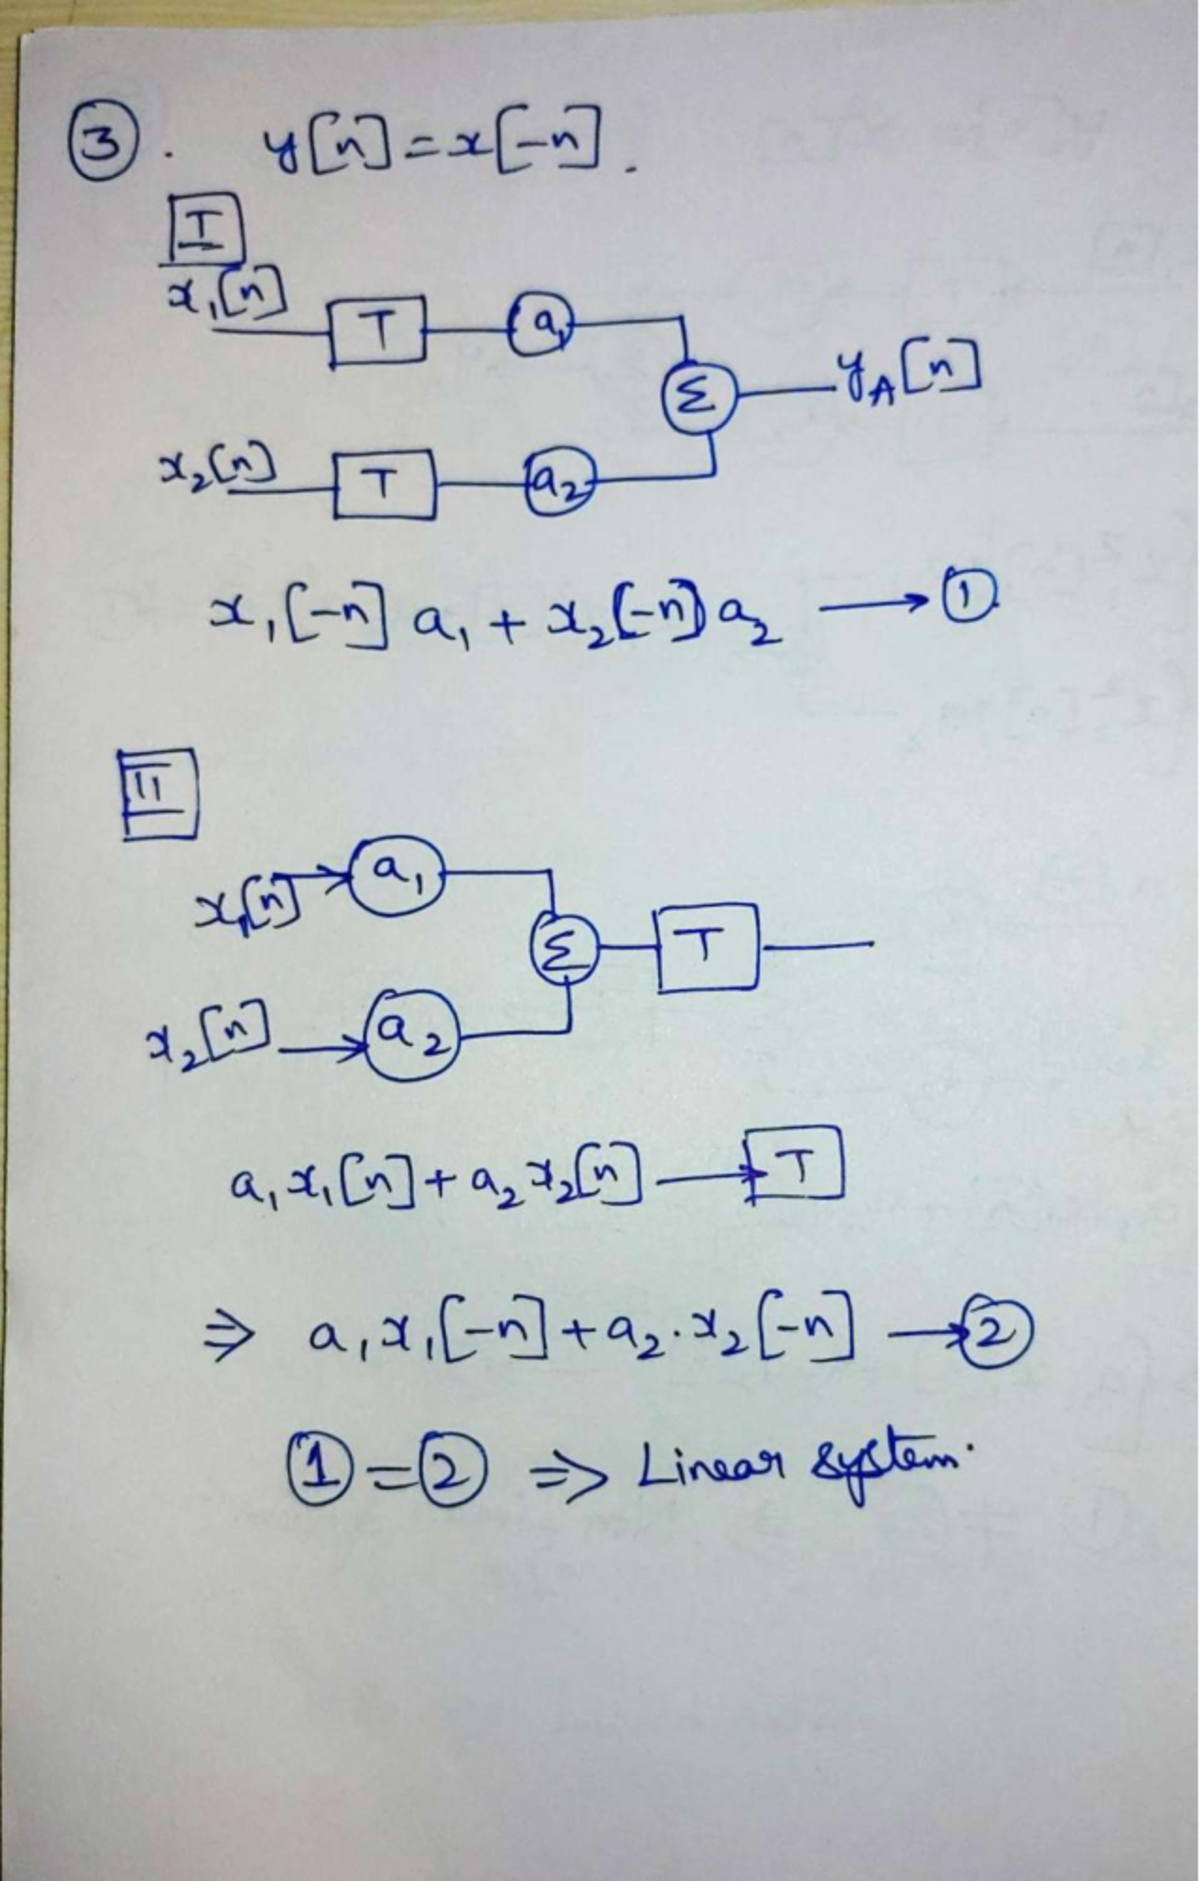 ③. y[n]=x[-n].
I
x₁[n] T a₁
Σ y_A[n]
x₂[n] T a₂
x₁[-n] a₁ + x₂[-n] a₂ → ①
II
x₁[n] → a₁
Σ T
x₂[n] → a₂
a₁x₁[n]+a₂x₂[n] → T
⇒ a₁x₁[-n]+a₂.x₂[-n] → ②
①=② ⇒ Linear system.